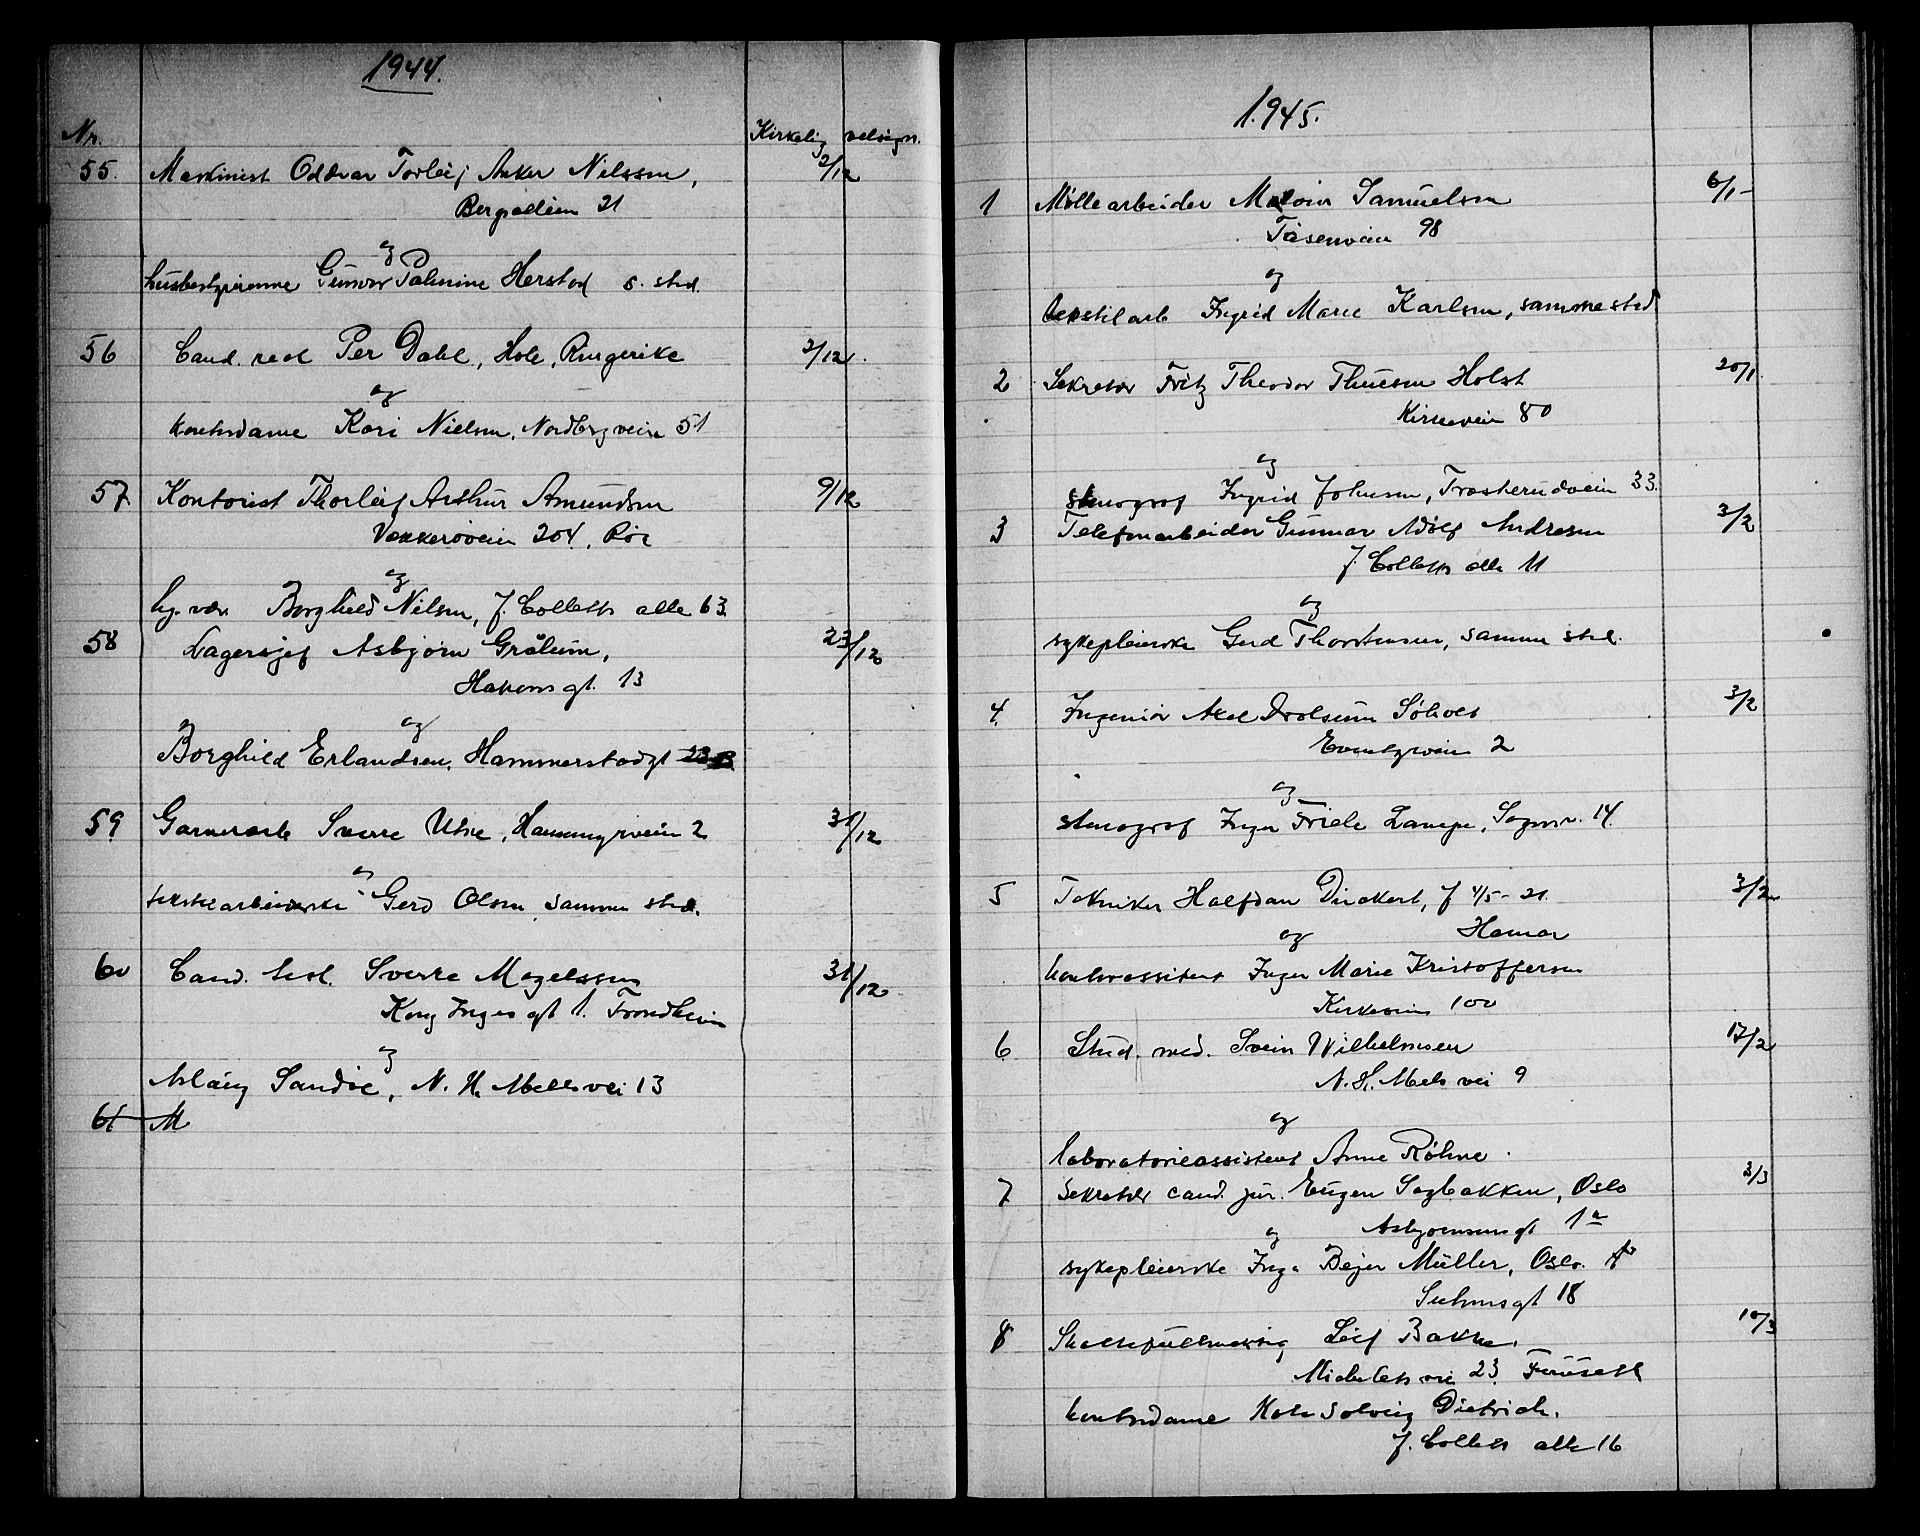 1944.
Nr. Kirkelig velsign.
55. Maskinist Oddvar Torleif Anker Nilssen, 2/12
Bergsalleen 21
og
husbestyrerinne Gunvor Palmine Herstad s. sted.
56 Cand. real Per Dahl, Hole, Ringerike 2/12.
og
kontordame Kari Nielsen, Nordbergveien 51
57 Kontorist Thorleif Arthur Amundsen 9/12
Vækkeröveien 204, Röa
og
hj. vær. Borghild Nilsen, J. Colletts alle 63
58 Lagersjef Asbjørn Grålum, 23/12
Hakons gt. 13
og
Borghild Erlandsen, Hammerstadgt
59 Garverarb Sverre Utne, veien 2 31/12
og
tekstilarbeiderske Gerd Olsen samme sted.
60 Cand. Sverre Magelssen 31/12
Kong Inges gt 1. Trondheim
og
Aslaug Sandöe, N. H. Abels vei 13
61 M
1945.
1 Møllearbeider Samuelsen 6/1-
Tåsenveien 98
og
tekstilarb Ingrid Marie Karlsen, sammested
2 Sekretær Fritz Theodor Thuesen Holst 20/1
Kirkeveien 80
og
stenograf Ingrid Johnsen, Trosterudveien 33.
3 Telefonarbeider Gunnar Adolf Andresen 3/2
J. Colletts alle 11
og
sykepleierske Gerd Thorstensen, samme sted.
4. Ingeniör Axel Drolsum Sölvol 3/2
veien 2
og
stenograf Inger Friele Lampe, Sognsv. 14.
5 Tekniker Halfdan Dirckert, f 4/5-21. 3/2
og Hamar
kontorassistent Inger Marie Kristoffersen
Kirkeveien 100
6 Stud. med. Svein Wilhelmsen 17/2
N. H. Abels vei 9
og
laboratorieassistent Anne Röhne.
7 Sekretær cand. jur. Eugen Sagbakken, Oslo 3/3
og Asbjörnsensgt 1a
sykepleierske Inga Bejer Müller, Oslo.
Suhmsgt 18
8 Skattefullmektig Leif Bakke. 10/3
Michelets vei 23. Furuset
kontordame Solveig Dietrich.
J. Colletts alle 16